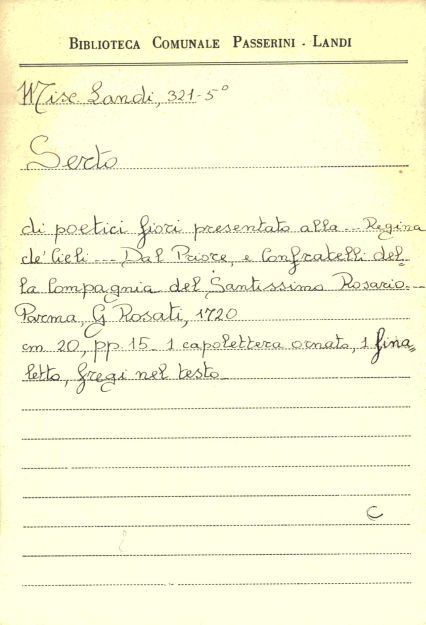 BIBLIOTECA COMUNALE PASSERINI - LANDI
Misc Landi, 321-5°
Serto
di poetici fiori presentato alla --- Regina
de' Cieli --- Dal Priore, e Confratelli del=
la Compagnia del Santissimo Rosario---
Parma, G Rosati, 1720
cm 20, pp. 15 - 1 capolettera ornato, 1 fina=
letto, fregi nel testo
C